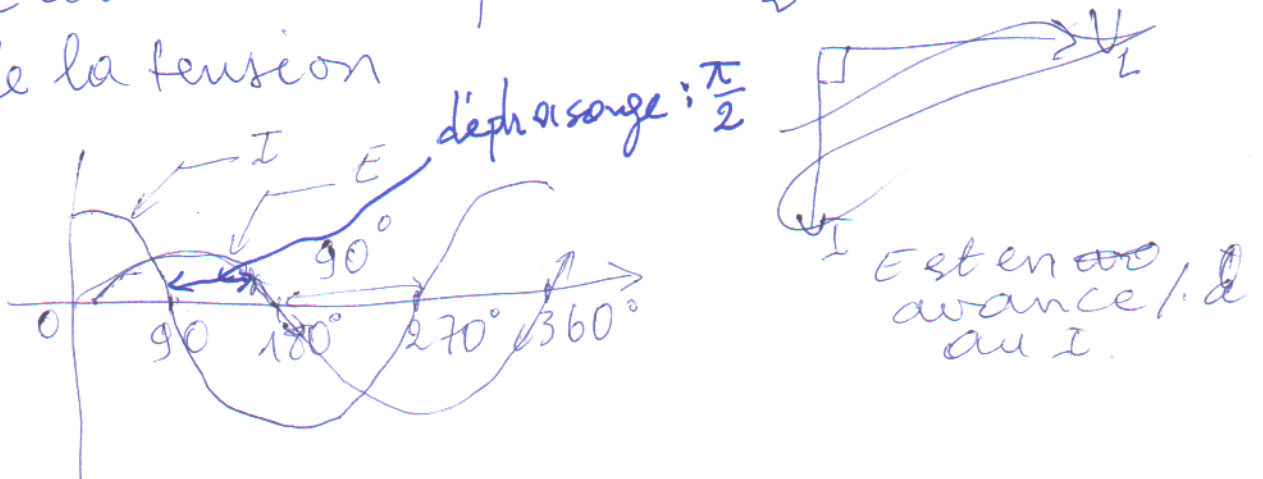 de la tension
déphasage : π/2
I
E
90°
0 90 180° 270° 360°
L
I
E est en
avance /. à
au I